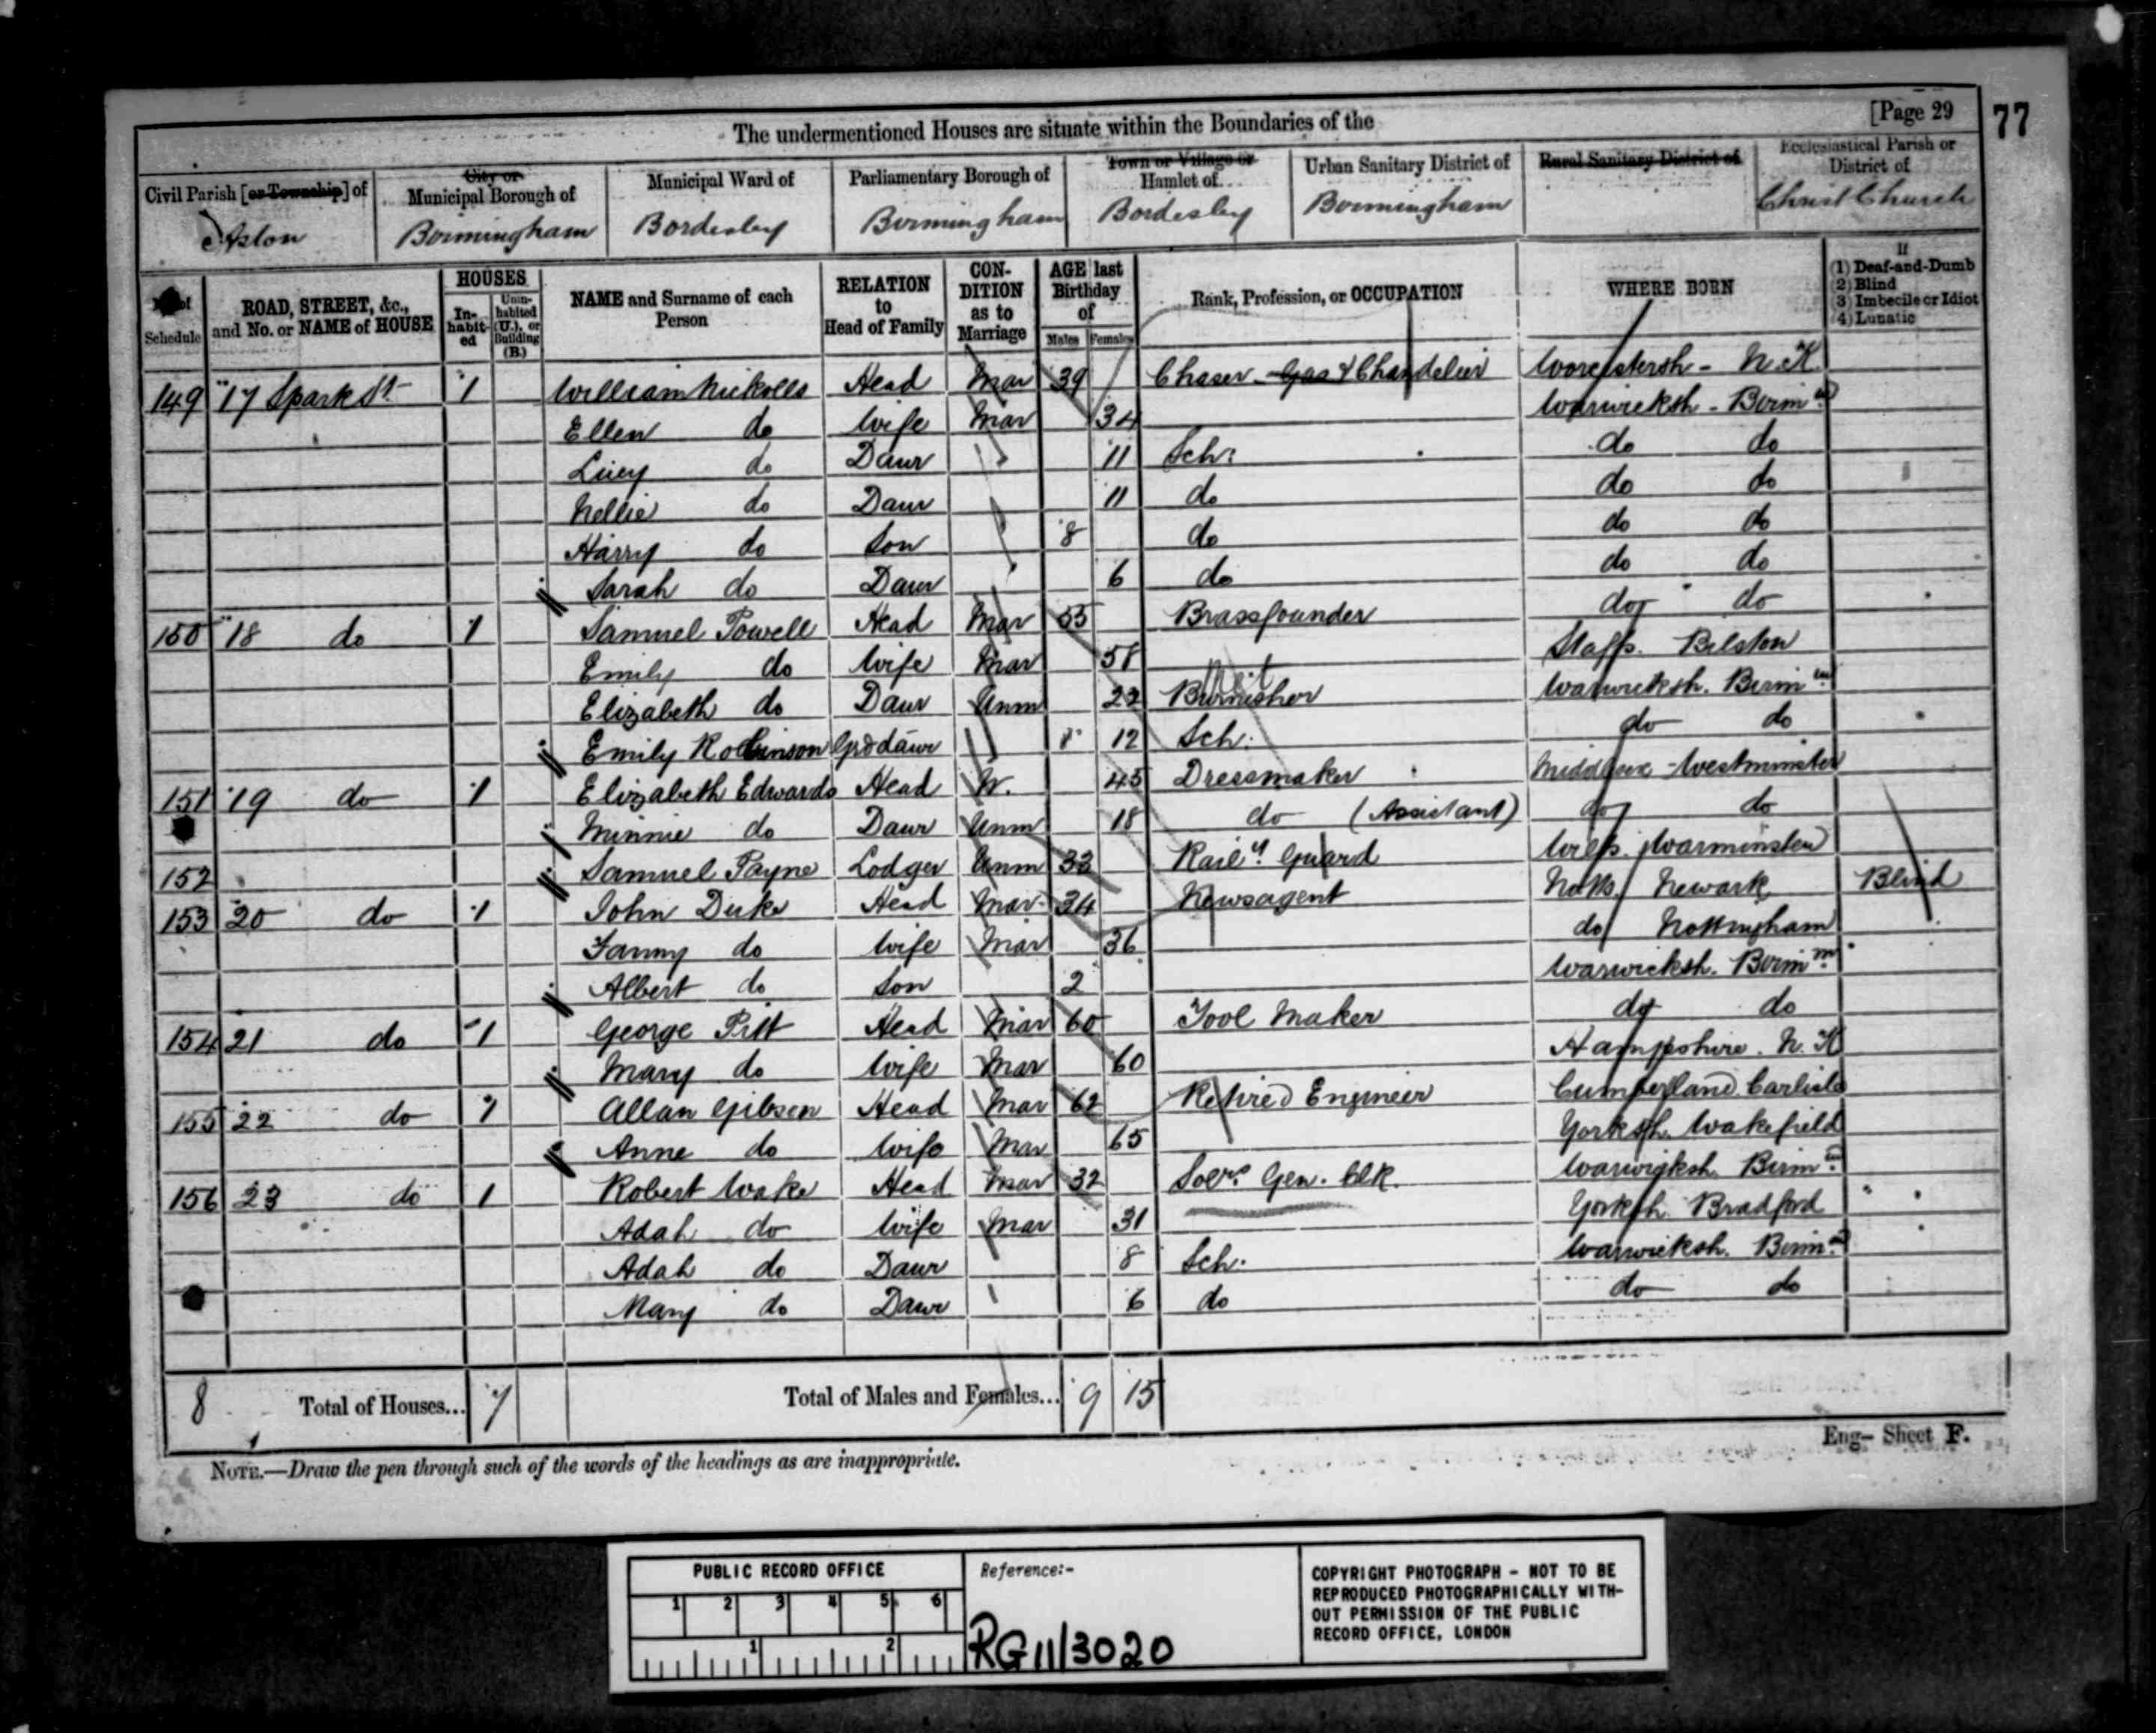 [Page 29
77
The undermentioned Houses are situate within the Boundaries of the
Civil Parish [or Township] of Aston
City or Municipal Borough of Birmingham
Municipal Ward of Bordesley
Parliamentary Borough of Birmingham
Town or Village or Hamlet of Bordesley
Urban Sanitary District of Birmingham
Rural Sanitary District of
Ecclesiastical Parish or District of Christ Church
No. of Schedule
ROAD, STREET, &c., and No. or NAME of HOUSE
HOUSES
In-habit-ed
Unin-habited (U.), or Building (B.)
NAME and Surname of each Person
RELATION to Head of Family
CON-DITION as to Marriage
AGE last Birthday of
Males Females
Rank, Profession, or OCCUPATION
WHERE BORN
If (1) Deaf-and-Dumb (2) Blind (3) Imbecile or Idiot (4) Lunatic
149 17 Spark St 1 William Nickolls Head Mar 39 Chaser - Gas & Chandelier Worcestersh - N.K.
Ellen do Wife Mar 34 Warwicksh - Birmm
Lucy do Daur 11 Sch: do do
Nellie do Daur 11 do do do
Harry do Son 8 do do do
Sarah do Daur 6 do do do
150 18 do 1 Samuel Powell Head Mar 55 Brassfounder do do
Emily do Wife Mar 58 Staffs. Bilston
Elizabeth do Daur Unm 22 Burnisher Warwicksh. Birmm
Emily Robinson Grddaur 12 Sch. do do
151 19 do 1 Elizabeth Edwards Head W. 45 Dressmaker Middlsex - Westminster
Minnie do Daur Unm 18 do (Assistant) do do
152 Samuel Payne Lodger Unm 33 Raily. Guard Wilts. Warminster
153 20 do 1 John Duke Head Mar 34 Newsagent Notts. Newark Blind
Fanny do Wife Mar 36 do Nottingham
Albert do Son 2 Warwicksh. Birmm
154 21 do 1 George Pitt Head Mar 60 Tool Maker do do
Mary do Wife Mar 60 Hampshire. N.K
155 22 do 1 Allan Gibson Head Mar 62 Retired Engineer Cumberland Carlisle
Anne do Wife Mar 65 Yorksh. Wakefield
156 23 do 1 Robert Wake Head Mar 32 Solrs. Gen. Clk. Warwicksh. Birmm
Adah do Wife Mar 31 Yorksh. Bradford
Adah do Daur 8 Sch. Warwicksh. Birmm
Mary do Daur 6 do do do
8 Total of Houses... 7 Total of Males and Females... 9 15
Eng- Sheet F.
NOTE.—Draw the pen through such of the words of the headings as are inappropriate.
PUBLIC RECORD OFFICE
1 2 3 4 5 6
1 2
Reference:-
RG11/3020
COPYRIGHT PHOTOGRAPH - NOT TO BE
REPRODUCED PHOTOGRAPHICALLY WITH-
OUT PERMISSION OF THE PUBLIC
RECORD OFFICE, LONDON